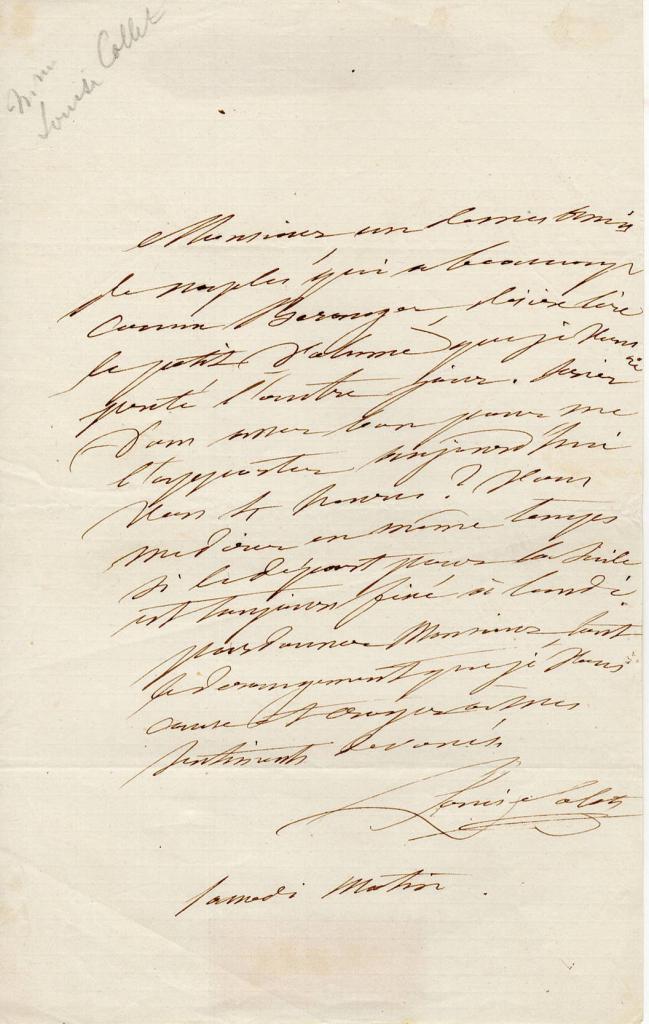 Mme
Louise Collet
Monsieur un de mes amis
de naples qui a beaucoup
connu Beranger, désire lire
le petit volume que je vous ai
preté l'autre jour. Seriez
Vous assez bon pour me
l'apporter aujourd'hui
vers 4 heures? Vous
me direz en même temps
si le départ pour la Sicile
est toujours fixé à lundi
pardonnez Monsieur, tout
le derangement que je vous
cause et croyez à mes
sentiments devoués
Louise Colet
samedi matin.